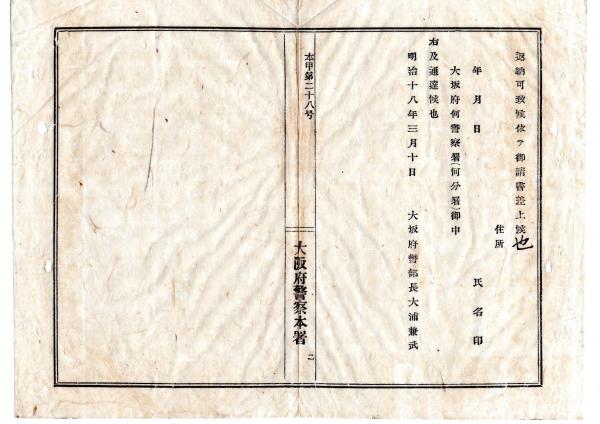 返納可致候依テ御請書差上候也
住所
氏名印
年月日
大坂府何警察署(何分署)御中
右及通達候也
明治十八年三月十日 大坂府警部長大浦兼武
本甲第二十八号
大阪府警察本署
二